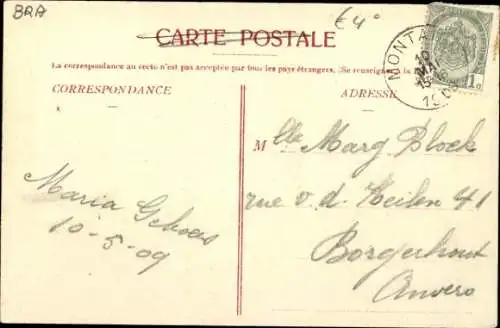 BRA
€4°
CARTE POSTALE
La correspondance au recto n'est pas acceptée par tous les pays étrangers. (Se renseigner à la
CORRESPONDANCE
ADRESSE
MONTA
10
MAI
1c
Mlle Marg Block
rue v. d. Keilen 41
Borgerhout
Anvers
Maria
10-5-09